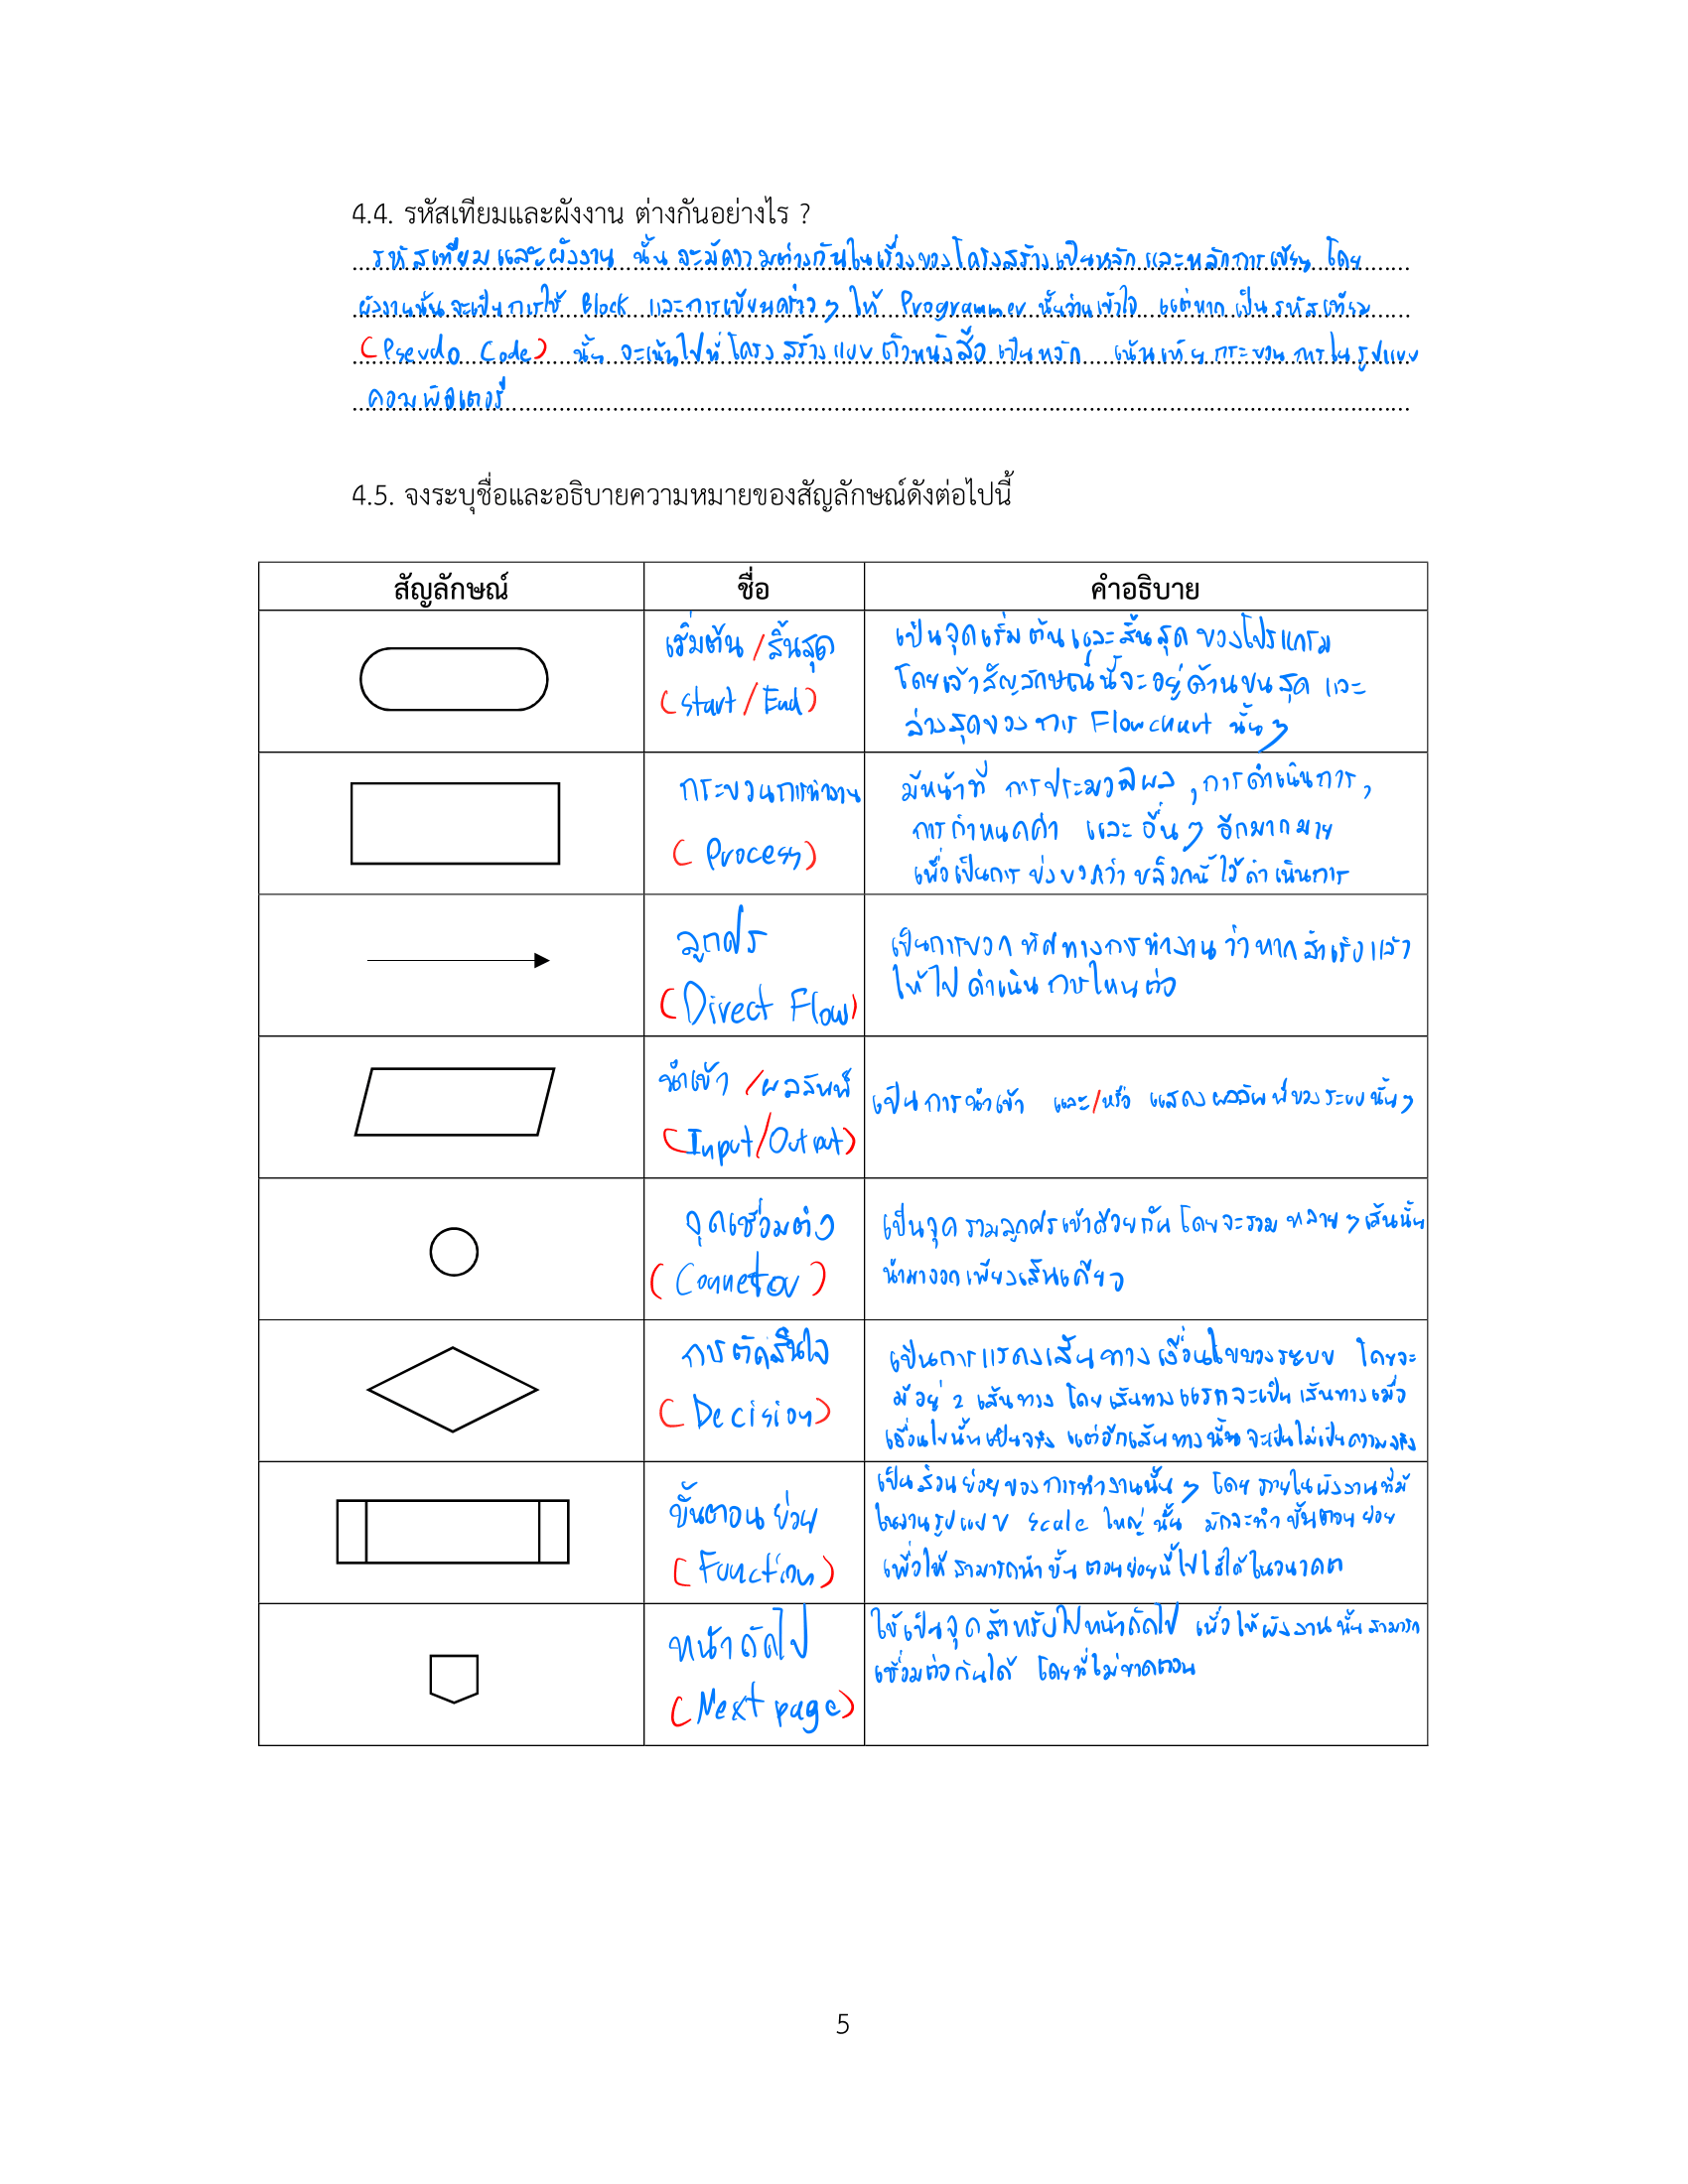 4.4. รหัสเทียมและผังงาน ต่างกันอย่างไร ?
รหัสเทียมและผังงาน นั้น จะมีความต่างกันในเรื่องของโครงสร้างเป็นหลัก และหลักการเขียน โดย
ผังงานนั้นจะเป็นการใช้ Block และการเขียนคร่าว ๆ ให้ Programmer นั้นอ่านเข้าใจ แต่หากเป็นรหัสเทียม
(Pseudo Code) นั้น จะเน้นไปที่โครงสร้างแบบตัวหนังสือเป็นหลัก เน้นเห็นกระบวนการในรูปแบบ
คอมพิวเตอร์
4.5. จงระบุชื่อและอธิบายความหมายของสัญลักษณ์ดังต่อไปนี้
สัญลักษณ์ ชื่อ คำอธิบาย
เริ่มต้น / สิ้นสุด
(Start / End)
เป็นจุดเริ่มต้นและสิ้นสุดของโปรแกรม
โดยเจ้าสัญลักษณ์นี้จะอยู่ด้านบนสุด และ
ล่างสุดของการ Flowchart นั้นๆ
กระบวนการทำงาน
(Process)
มีหน้าที่ การประมวลผล , การดำเนินการ ,
การกำหนดค่า และอื่นๆ อีกมากมาย
เพื่อเป็นการบ่งบอกว่าบล็อกนี้ไว้ดำเนินการ
ลูกศร
(Direct Flow)
เป็นการบอกทิศทางการทำงานว่าหากสำเร็จแล้ว
ให้ไปดำเนินการไหนต่อ
นำเข้า /ผลลัพท์
(Input/Output)
เป็นการนำเข้า และ/หรือ แสดงผลลัพท์ของระบบนั้นๆ
จุดเชื่อมต่อ
(Connetor)
เป็นจุดรวมลูกศรเข้าด้วยกัน โดยจะรวมหลายๆเส้นนั้น
นำมาออกเพียงเส้นเดียว
การตัดสินใจ
(Decision)
เป็นการแสดงเส้นทางเงื่อนไขของระบบ โดยจะ
มีอยู่ 2 เส้นทาง โดยเส้นทางแรกจะเป็นเส้นทางเมื่อ
เงื่อนไขนั้นเป็นจริง แต่อีกเส้นทางนั้นจะเป็นไม่เป็นความจริง
ขั้นตอนย่อย
(Function)
เป็นส่วนย่อยของการทำงานนั้นๆ โดยภายในผังงานที่มี
ในงานรูปแบบ Scale ใหญ่นั้น มักจะทำขั้นตอนย่อย
เพื่อให้สามารถนำขั้นตอนย่อยนี้ไปใช้ได้ในอนาคต
หน้าถัดไป
(Next page)
ใช้เป็นจุดสำหรับไปหน้าถัดไป เพื่อให้ผังงานนั้นสามารถ
เชื่อมต่อกันได้ โดยที่ไม่ขาดตอน
5